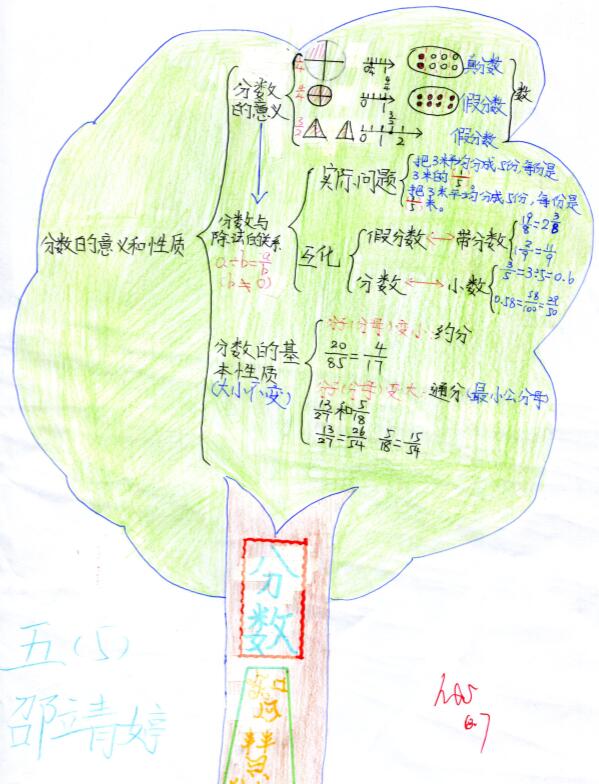 分数的意义和性质
分数的意义
1/4
0 1/4 1
真分数
4/4
0 1
假分数
3/2
0 1 3/2 2
假分数
数
分数与除法的关系
a÷b=a/b
(b≠0)
实际问题
把3米平均分成5份,每份是
3米的1/5。
把3米平均分成5份,每份是
米。
互化
假分数 ↔ 带分数
19/8=2 3/8
1 2/9=11/9
分数 ↔ 小数
3/5=3÷5=0.6
0.58=58/100=29/50
分数的基本性质
(大小不变)
分子(分母)变小:约分
20/85=4/17
分子(分母)变大:通分(最小公分母)
13/27和5/18
13/27=26/54 5/18=15/54
分数
五(5)
邵靖婷